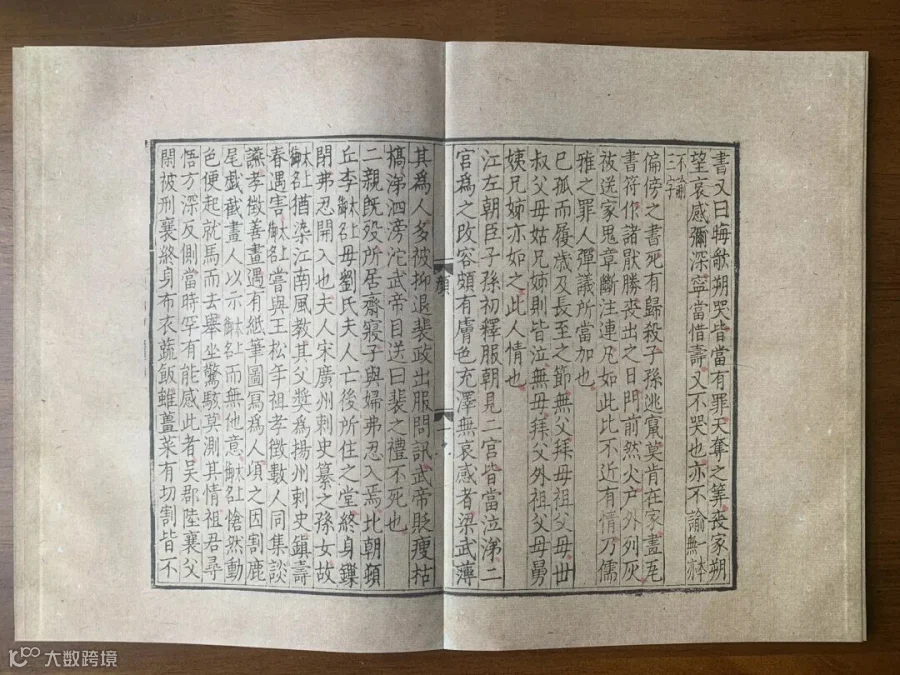 書又曰晦歌朔哭皆當有罪天奪之筭喪家朔
望哀感彌深寧當惜壽又不哭也亦不諭一本無
不諭三字
偏傍之書死有歸殺子孫逃竄莫肯在家畫瓦
書符作諸猒勝喪出之日門前然火户外列灰
被送家鬼章斷注連凡如此比不近有情乃儒
雅之罪人彈議所當加也
已孤而履歳及長至之節無父拜母祖父母世
叔父母姑兄姊則皆泣無母拜父外祖父母舅
姨兄姊亦如之此人情也
江左朝臣子孫初釋服朝見二宮皆當泣涕二
宮爲之改容頗有膚色充澤無哀感者梁武薄
顔
其爲人多被抑退裴政出服問訊武帝貶瘦枯
槁涕泗滂沱武帝目送曰裴之禮不死也
二親既歿所居齋寢子與婦弗忍入焉北朝頓
丘李太上御名母劉氏夫人亡後所住之堂終身鏁
閉弗忍開入也夫人宋廣州刺史纂之孫女故
太上御名猶染江南風教其父奬爲揚州刺史鎮壽
春遇害太上御名嘗與王松年祖孝徵數人同集談
讌孝徵善畫遇有紙筆圖寫爲人頃之因割鹿
尾戲截畫人以示太上御名而無他意太上御名愴然動
色便起就馬而去舉坐驚駭莫測其情祖君尋
悟方深反側當時罕有能感此者吳郡陸襄父
閑被刑襄終身布衣蔬飯雖薑菜有切割皆不
大数跨境